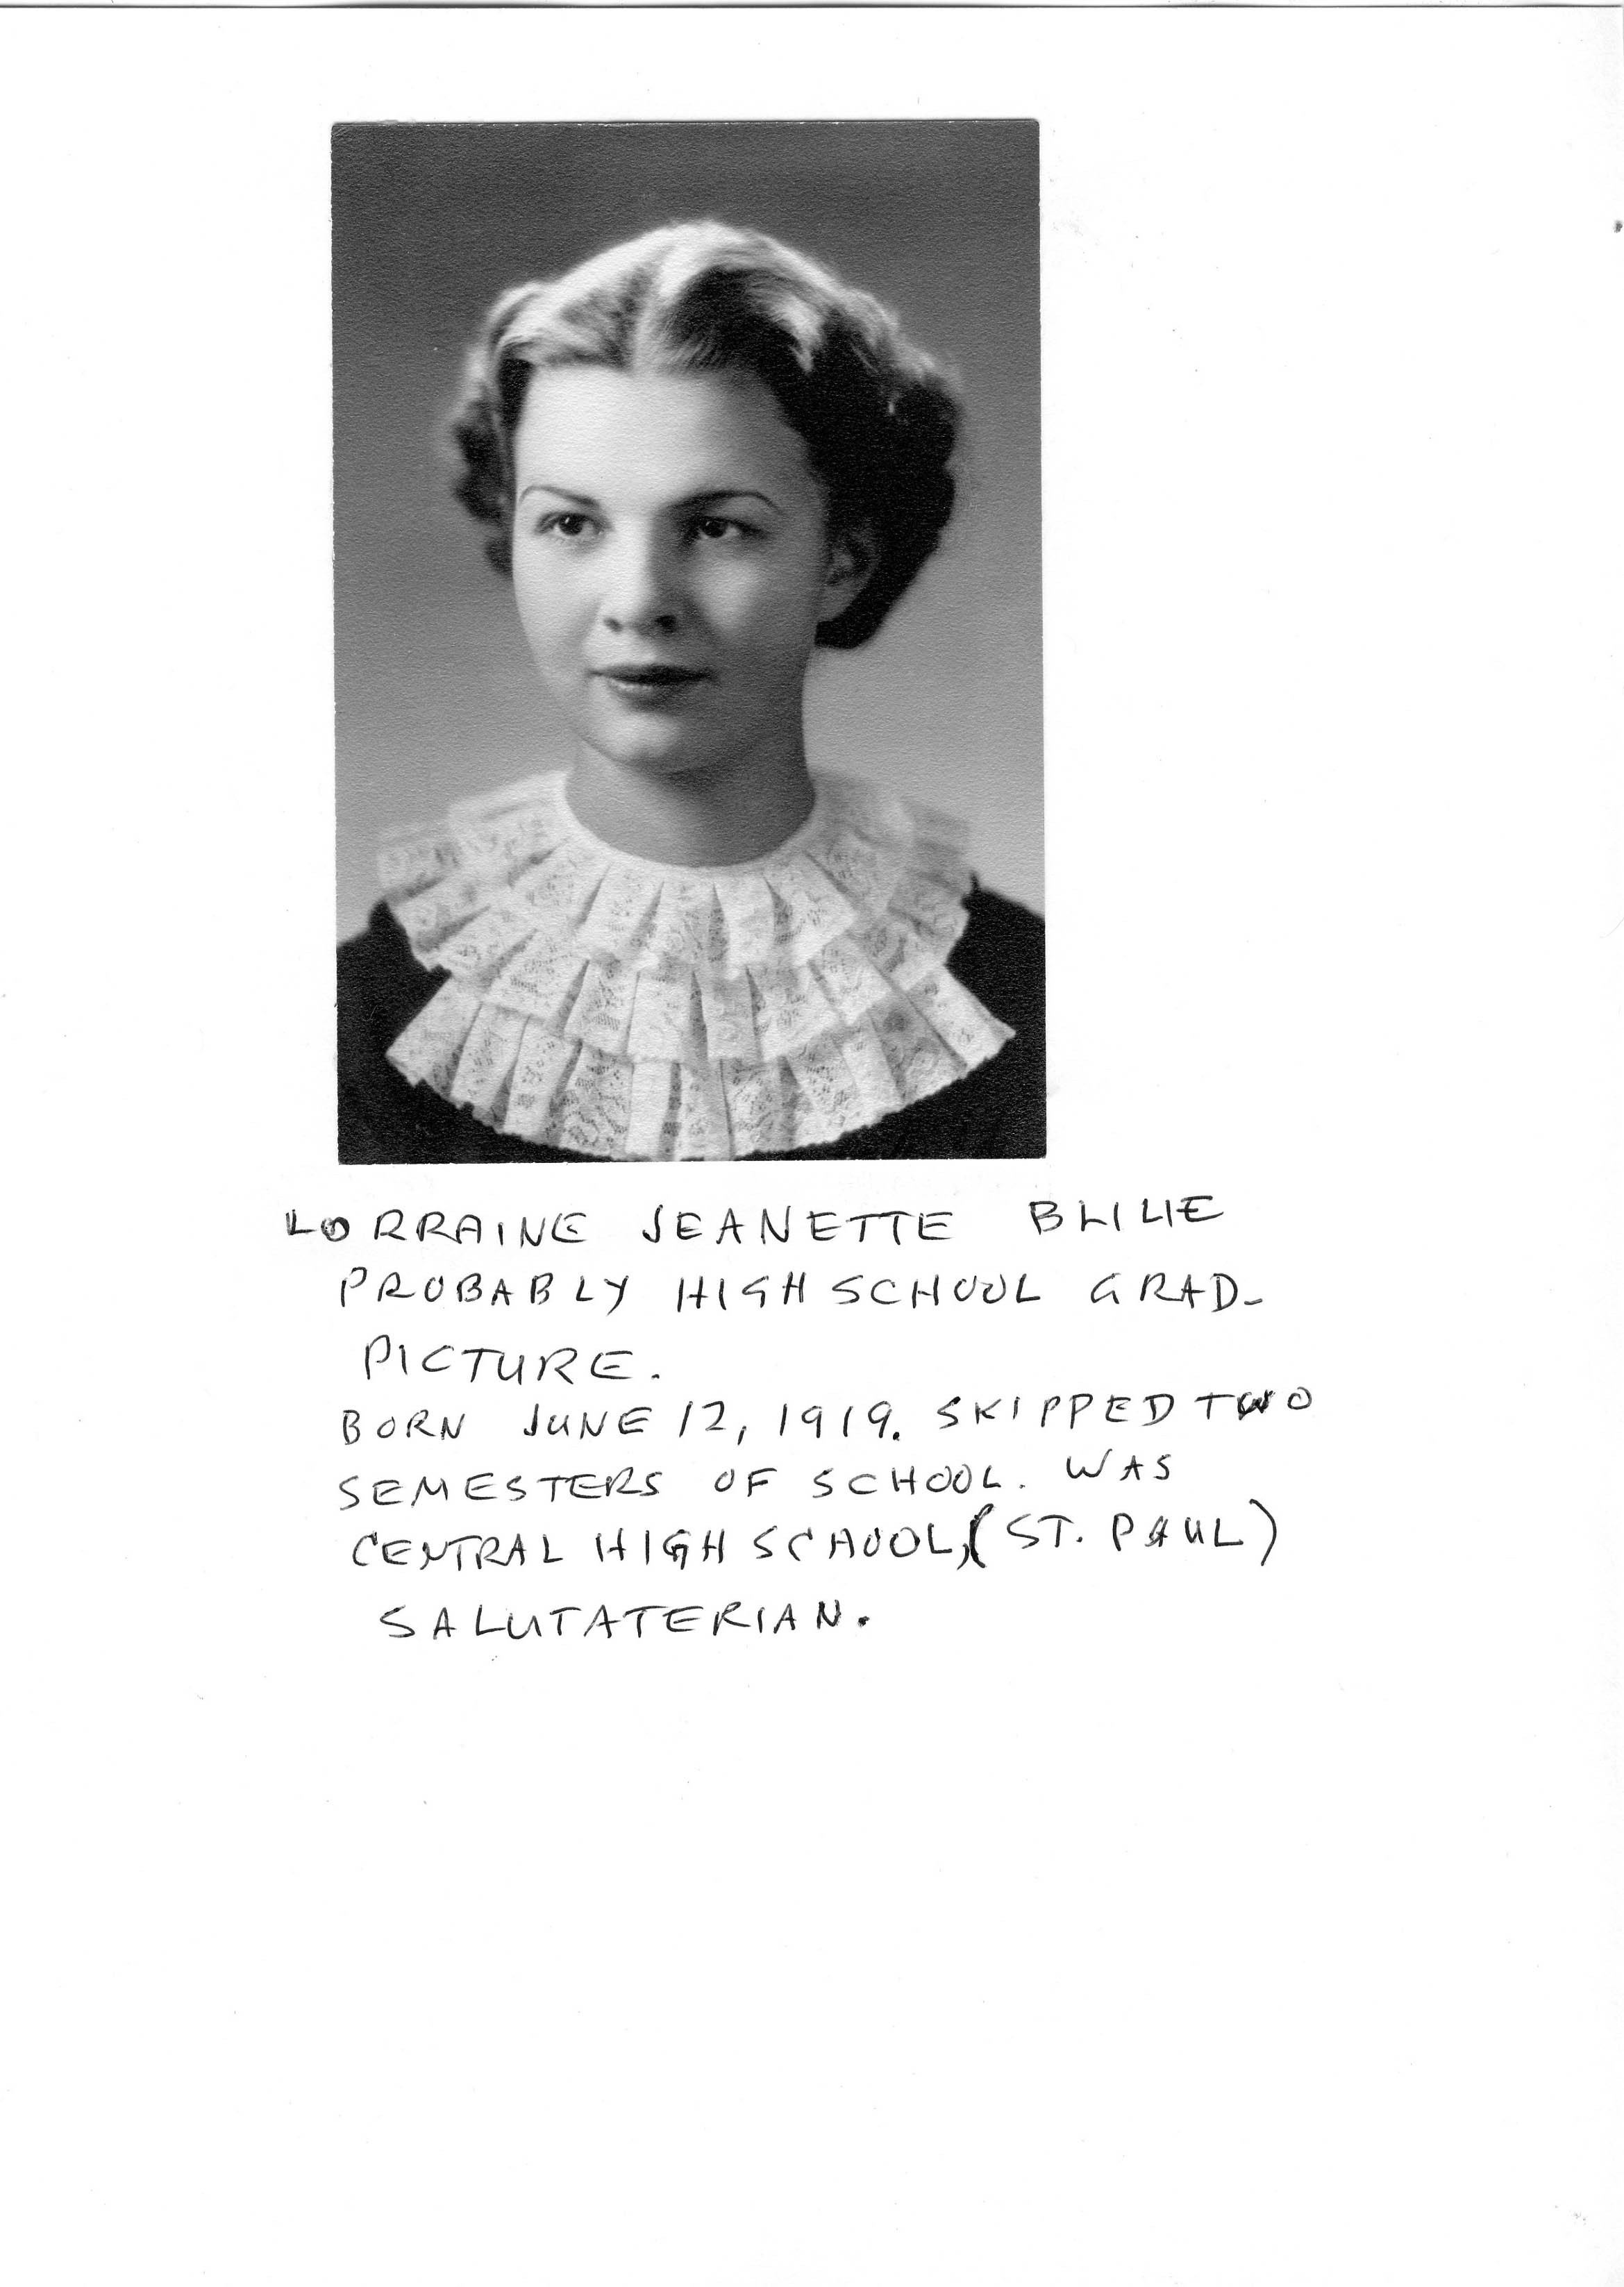 LORRAINE JEANETTE BLILIE
PROBABLY HIGH SCHOOL GRAD-
PICTURE.
BORN JUNE 12, 1919. SKIPPED TWO
SEMESTERS OF SCHOOL. WAS
CENTRAL HIGH SCHOOL, (ST. PAUL)
SALUTATERIAN.